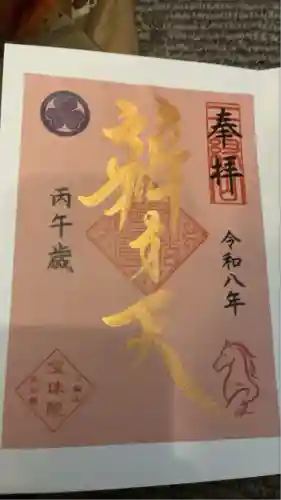 奉拝
令和八年
辯才天
丙午歳
宝珠院